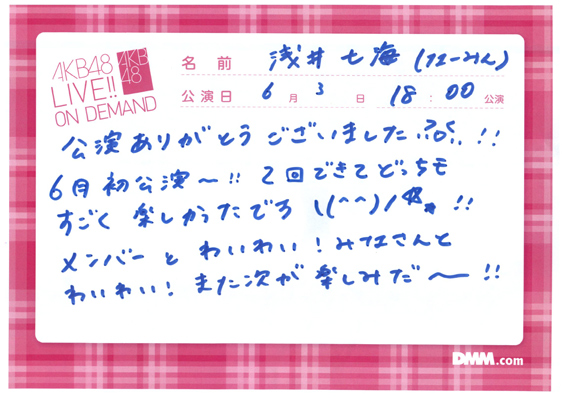 AKB48
LIVE!!
ON DEMAND
AKB
48
名前 浅井七海(なーみん)
公演日 6月3日 18:00公演
公演ありがとうございました!!
6月初公演〜!! 2回できてどっちも
すごく楽しかったでろ \(^^)/ !!
メンバーとわいわい!みなさんと
わいわい!また次が楽しみだ〜!!
DMM.com